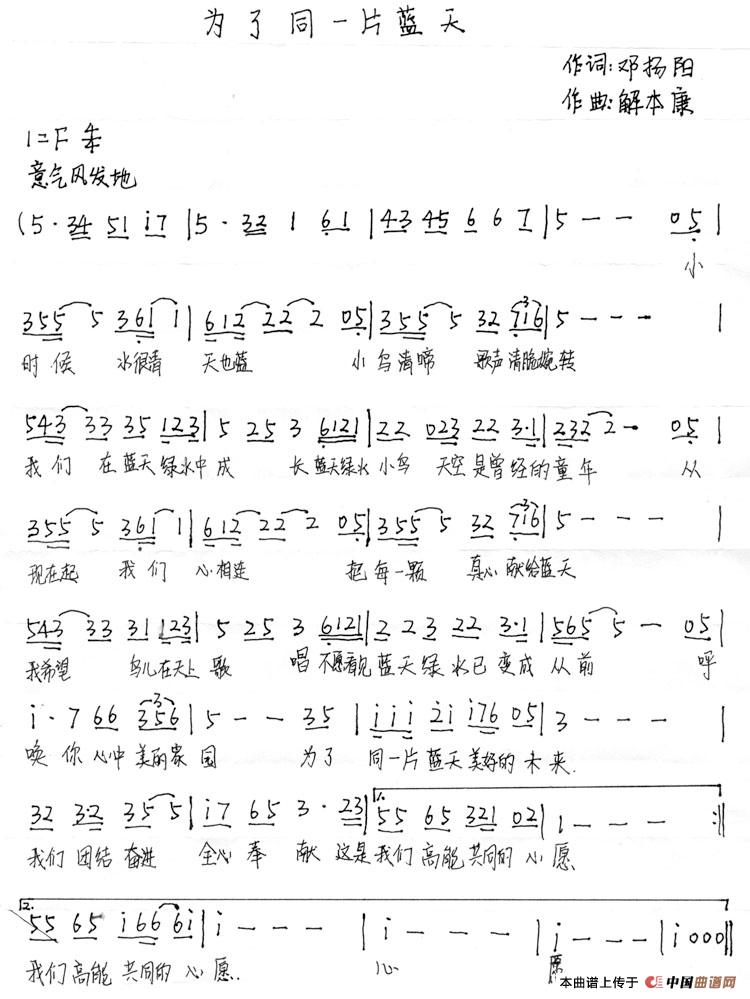 为了同一片蓝天
作词:邓扬阳
作曲:解本康
1=F 4/4
意气风发地
(5·34 51 i7 | 5·32 1 61 | 43 45 6 6 7 | 5 — — 05 |
小
355 5 361 1 | 612 22 2 05 | 355 5 32 716 | 5 — — — |
时候 水很清 天也蓝 小鸟清啼 歌声清脆婉转
543 33 35 123 | 5 25 3 6121 | 22 023 22 3·1 | 232 2 — 05 |
我们 在蓝天绿水中成 长蓝天绿水小鸟 天空是曾经的童年 从
355 5 361 1 | 612 22 2 05 | 355 5 32 716 | 5 — — — |
现在起 我们 心相连 把每一颗 真心献给蓝天
543 33 31 123 | 5 25 3 6121 | 2 23 22 3·1 | 565 5 — 05 |
我希望 鸟儿在天上歌 唱不愿看见蓝天绿水已变成从前 呼
i·7 66 356 | 5 — — 35 | i i i 2i i76 05 | 3 — — — |
唤你心中美丽家园 为了 同一片蓝天美好的未来.
32 3·2 35 5 | i7 65 3·23 | 1. 55 65 321 02 | 1 — — — :||
我们团结奋进 全心奉献 这是我们高能共同的心愿.
2. 55 65 i66 6i | i — — — | i — — — | i — — — | i000 ||
我们高能共同的心愿. 心 愿
本曲谱上传于 中国曲谱网